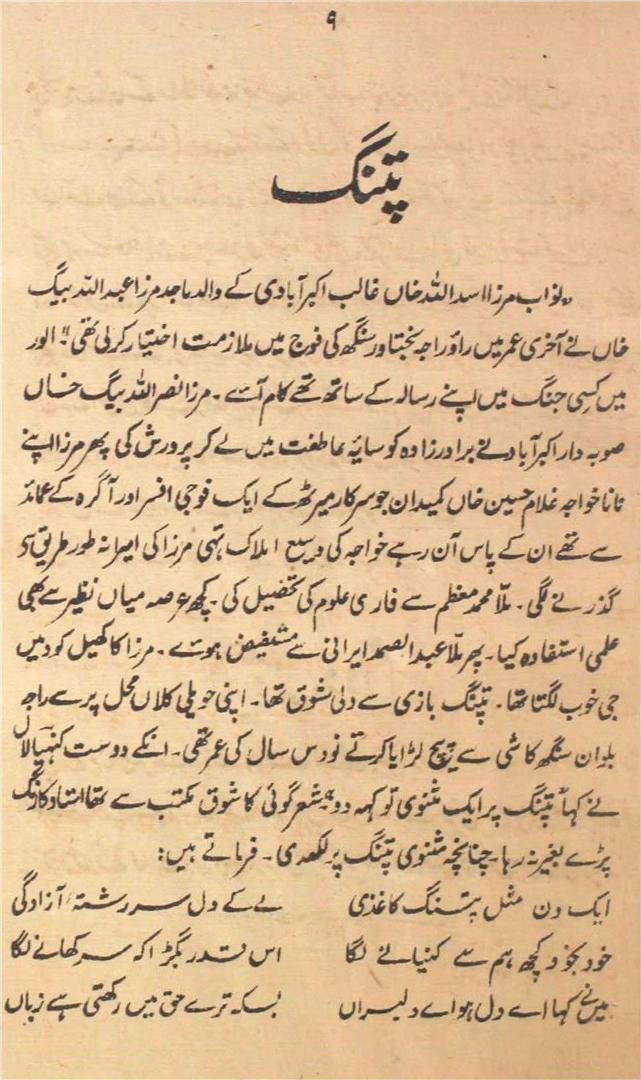 ۹
پتنگ
"نواب مرزا اسد اللہ خاں غالب اکبرآبادی کے والد ماجد مرزا عبد اللہ بیگ
خاں نے آخری عمر میں راؤ راجہ بختاور سنگھ کی فوج میں ملازمت اختیار کرلی تھی" الور
میں کسی جنگ میں اپنے رسالہ کے ساتھ تھے کام آئے۔ مرزا نصر اللہ بیگ خاں
صوبہ دار اکبرآباد نے برادرزادہ کو سایۂ عاطفت میں لے کر پرورش کی پھر مرزا اپنے
نانا خواجہ غلام حسین خاں کمیدان جو سرکار میرٹھ کے ایک فوجی افسر اور آگرہ کے عمائد
سے تھے ان کے پاس آن رہے خواجہ کی وسیع املاک تھی مرزا کی امیرانہ طور طریق سے
گذرنے لگی۔ ملّا محمد معظم سے فارسی علوم کی تحصیل کی۔ کچھ عرصہ میاں نظیر سے بھی
علمی استفادہ کیا۔ پھر ملّا عبد الصمد ایرانی سے مستفیض ہوئے۔ مرزا کا کھیل کود میں
جی خوب لگتا تھا۔ پتنگ بازی سے دلی شوق تھا۔ اپنی حویلی کلاں محل پر سے راجہ
بلوان سنگھ کاشی سے پیچ لڑایا کرتے نو دس سال کی عمر تھی۔ انکے دوست کنہیالال
نے کہا "پتنگ پر ایک مثنوی تو کہہ دو" شعر گوئی کا شوق مکتب سے تھا استاد کا رنگ
پڑے بغیر نہ رہا۔ چنانچہ مثنوی پتنگ پر لکھدی۔ فرماتے ہیں:
ایک دن مثل پتنگ کاغذی لے کے دل سر رشتۂ آزادگی
خود بخود کچھ ہم سے کنیانے لگا اس قدر بگڑا کہ سر کھانے لگا
میں نے کہا اے دل ہوائے دلبراں بسکہ ترے حق میں رکھتی ہے زباں